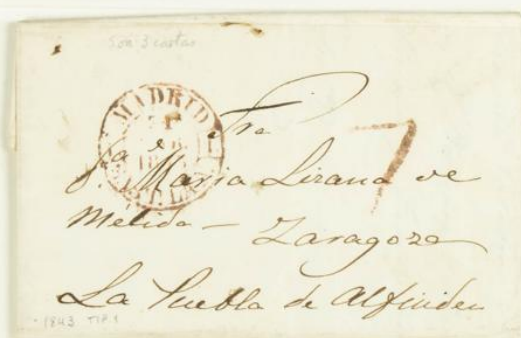 Son 3 cartas
MADRID
Fra
Sª Dª Maria Lizana de
Melida – Zaragoza
La Puebla de Alfinden
7
1843 TIP. 1